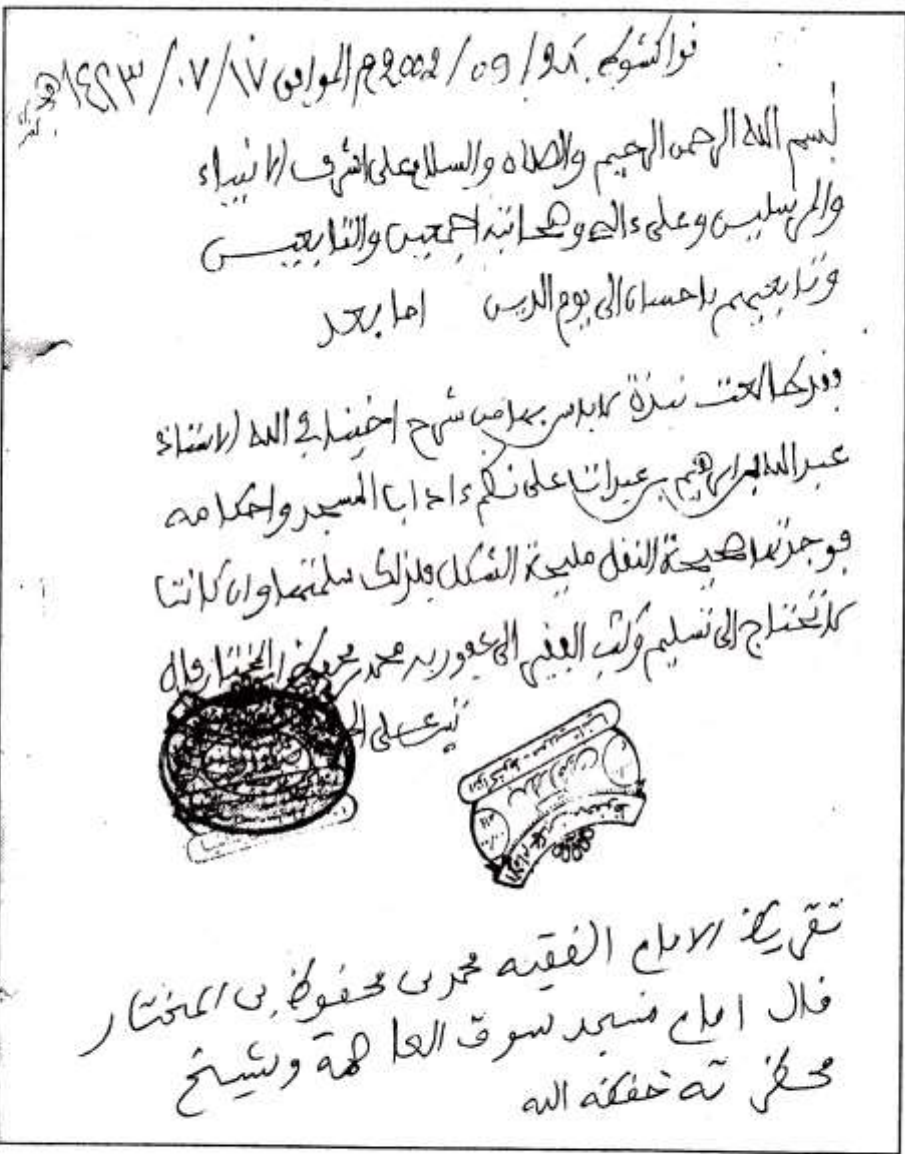 نواكشوط 28/09/2002م الموافق ١٧/٠٧/١٤٢٣هـ
بسم الله الرحمن الرحيم والصلاة والسلام على اشرف الانبياء
والمرسلين وعلى ءاله وصحابته اجمعين والتابعين
وتابعيهم باحسان الى يوم الدين اما بعد
فقد طالعت نبذة لا باس بها من شرح اخينا في الله الاستاذ
عبد الله بن ابراهيم بن عبدات على نظم ءاداب المسجد واحكامه
فوجدتها صحيحة النقل مليحة الشكل فلذلك سلمتها وان كانت
لا تحتاج الى تسليم وكتب الفقير الى عفو ربه محمد بن محفوظ بن المختار فال
تقريظ الامام الفقيه محمد بن محفوظ بن المختار
فال امام مسجد سوق العاصمة وشيخ
محظرته حفظه الله